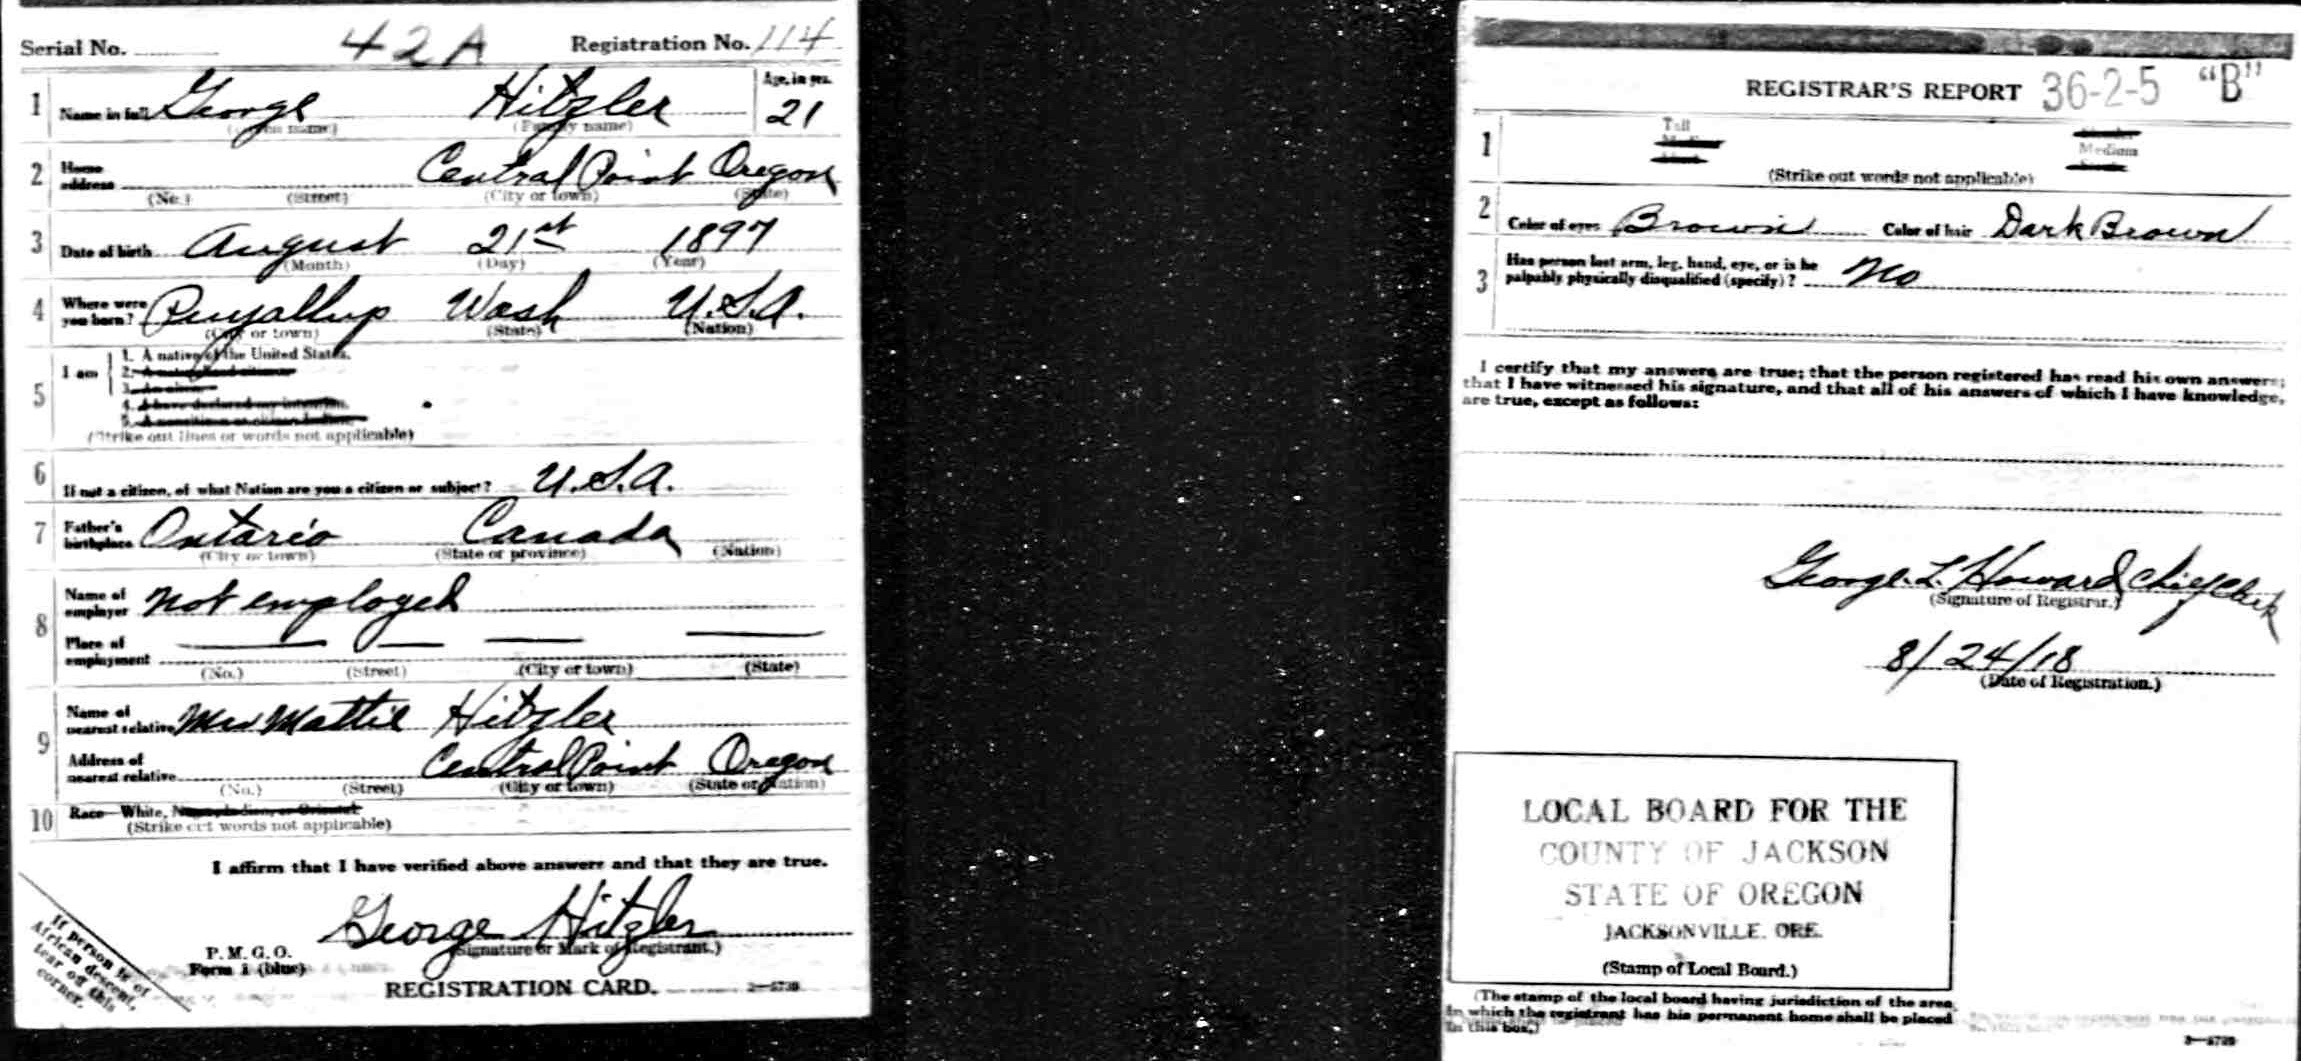 Serial No. 42A Registration No. 114
1 Name in full George Hitzler Age, in yrs. 21
(Given name) (Family name)
2 Home address Central Point Oregon
(No.) (Street) (City or town) (State)
3 Date of birth August 21st 1897
(Month) (Day) (Year)
4 Where were you born? Puyallup Wash U.S.A.
(City or town) (State) (Nation)
5 I am 1. A native of the United States.
2. A naturalized citizen
3. An alien
4. I have declared my intention
5.
(Strike out lines or words not applicable)
6 If not a citizen, of what Nation are you a citizen or subject? U.S.A.
7 Father's birthplace Ontario Canada
(City or town) (State or province) (Nation)
8 Name of employer Not employed
Place of employment
(No.) (Street) (City or town) (State)
9 Name of nearest relative Mrs Mattie Hitzler
Address of nearest relative Central Point Oregon
(No.) (Street) (City or town) (State or Nation)
10 Race—White, Negro, Indian, or Oriental
(Strike out words not applicable)
I affirm that I have verified above answers and that they are true.
George Hitzler
(Signature or Mark of Registrant.)
P. M. G. O.
Form 1 (blue)
REGISTRATION CARD.
If person is of
African descent,
tear off this
corner.
REGISTRAR'S REPORT 36-2-5 "B"
1 Tall Slender
Medium Medium
Short Stout
(Strike out words not applicable)
2 Color of eyes Brown Color of hair Dark Brown
3 Has person lost arm, leg, hand, eye, or is he
palpably physically disqualified (specify)? No
I certify that my answers are true; that the person registered has read his own answers;
that I have witnessed his signature, and that all of his answers of which I have knowledge,
are true, except as follows:
George L. Howard Chief Clerk
(Signature of Registrar.)
8/24/18
(Date of Registration.)
LOCAL BOARD FOR THE
COUNTY OF JACKSON
STATE OF OREGON
JACKSONVILLE. ORE.
(Stamp of Local Board.)
(The stamp of the local board having jurisdiction of the area
in which the registrant has his permanent home shall be placed
in this box.)